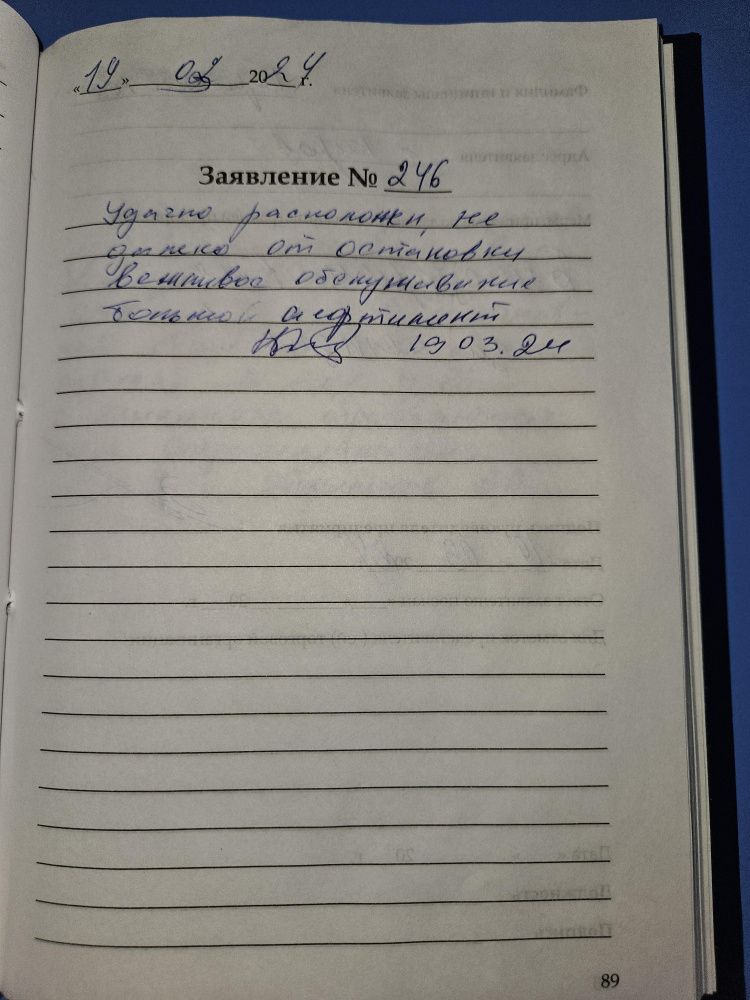 «19» 03 2024 г.
Заявление № 246
Удачно расположен, не
далеко от остановки
Вежливое обслуживание
Большой ассортимент
19 03.24
89